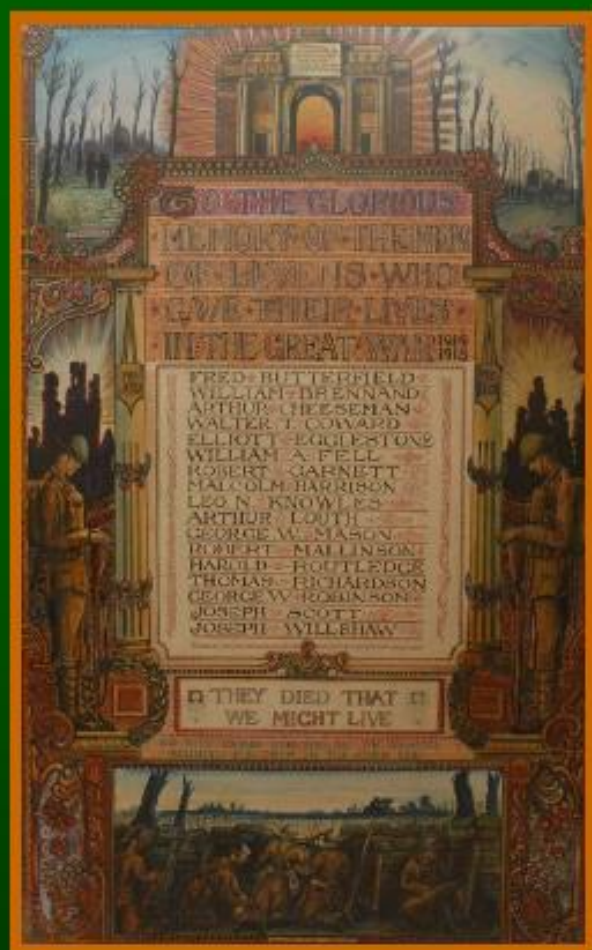 TO THE GLORIOUS
MEMORY OF THE MEN
OF LEVENS WHO
GAVE THEIR LIVES
IN THE GREAT WAR 1914 1918
FRED BUTTERFIELD
WILLIAM BRENNAND
ARTHUR CHEESEMAN
WALTER T. COWARD
ELLIOTT EGGLESTONE
WILLIAM A FELL
ROBERT GARNETT
MALCOLM HARRISON
LEO N KNOWLES
ARTHUR LOUTH
GEORGE W. MASON
ROBERT MALLINSON
HAROLD ROUTLEDGE
THOMAS RICHARDSON
GEORGE W ROBINSON
JOSEPH SCOTT
JOSEPH WILLSHAW
THEY DIED THAT
WE MIGHT LIVE